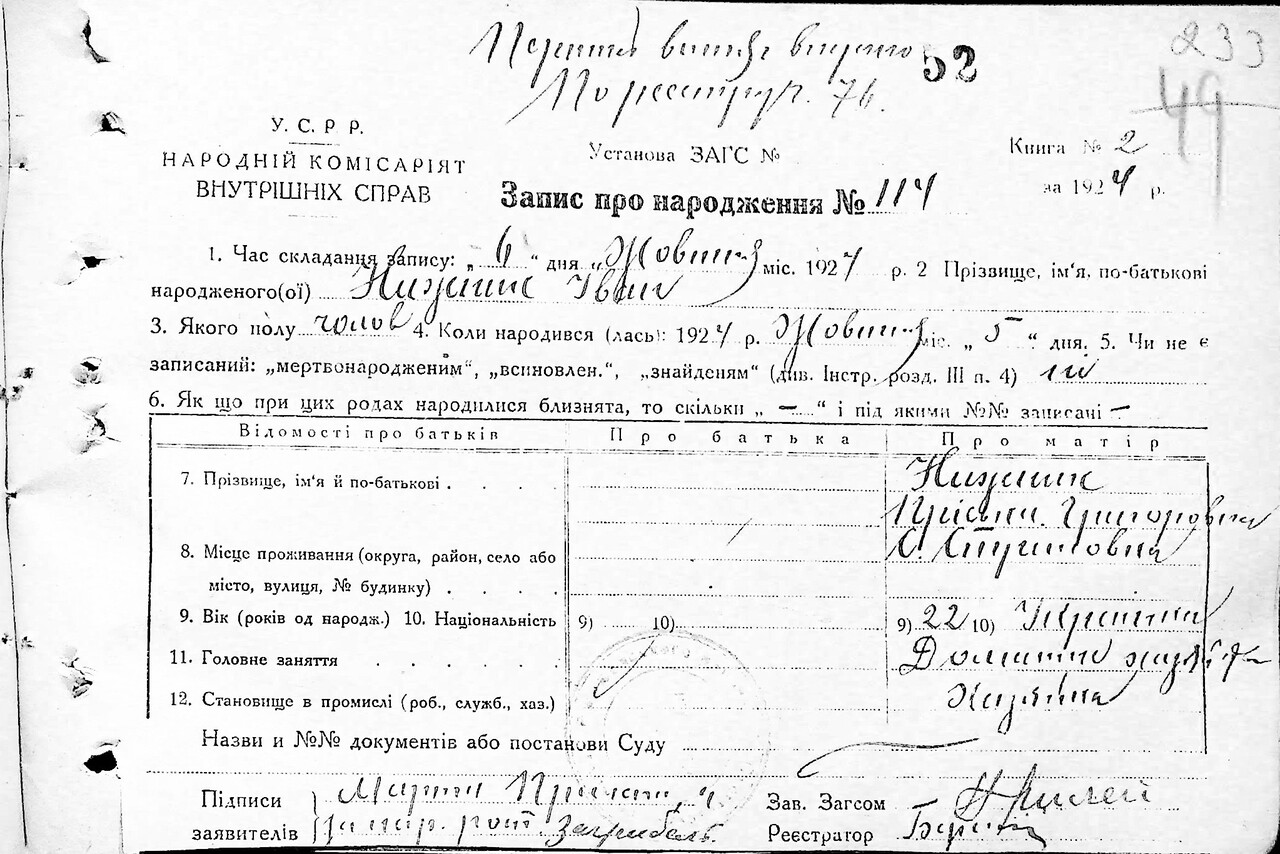 52
233
49
По реестру ч. 76.
У. С. Р. Р.
НАРОДНІЙ КОМІСАРІЯТ
ВНУТРІШНІХ СПРАВ
Установа ЗАГС №
Книга № 2
за 1924 р.
Запис про народження № 114
1. Час складання запису: „ 6 “ дня „ Жовтня міс. 1924 р. 2 Прізвище, ім‘я, по-батькові
народженого(ої) Нижник Іван
3. Якого полу чолов 4. Коли народився (лась): 1924 р. Жовтня міс. „ 5 “ дня. 5. Чи не є
записаний: „мертвонародженим“, „всиновлен.“, „знайденям“ (див. Інстр. розд. III п. 4) ні
6. Як що при цих родах народилися близнята, то скільки „ – “ і під якими №№ записані –
Відомості про батьків Про батька Про матір
7. Прізвище, ім‘я й по-батькові . . . . Нижник
Пріська Григоровна
8. Місце проживання (округа, район, село або
місто, вулиця, № будинку) . . . .
9. Вік (років од народж.) 10. Національність 9) 10) 9) 22 10) Українка
11. Головне заняття . . . . . Домашнє
12. Становище в промислі (роб., служб., хаз.) Хазяйка
Назви и №№ документів або постанови Суду
Підписи Мартин
заявителів
Зав. Загсом
Реєстратор